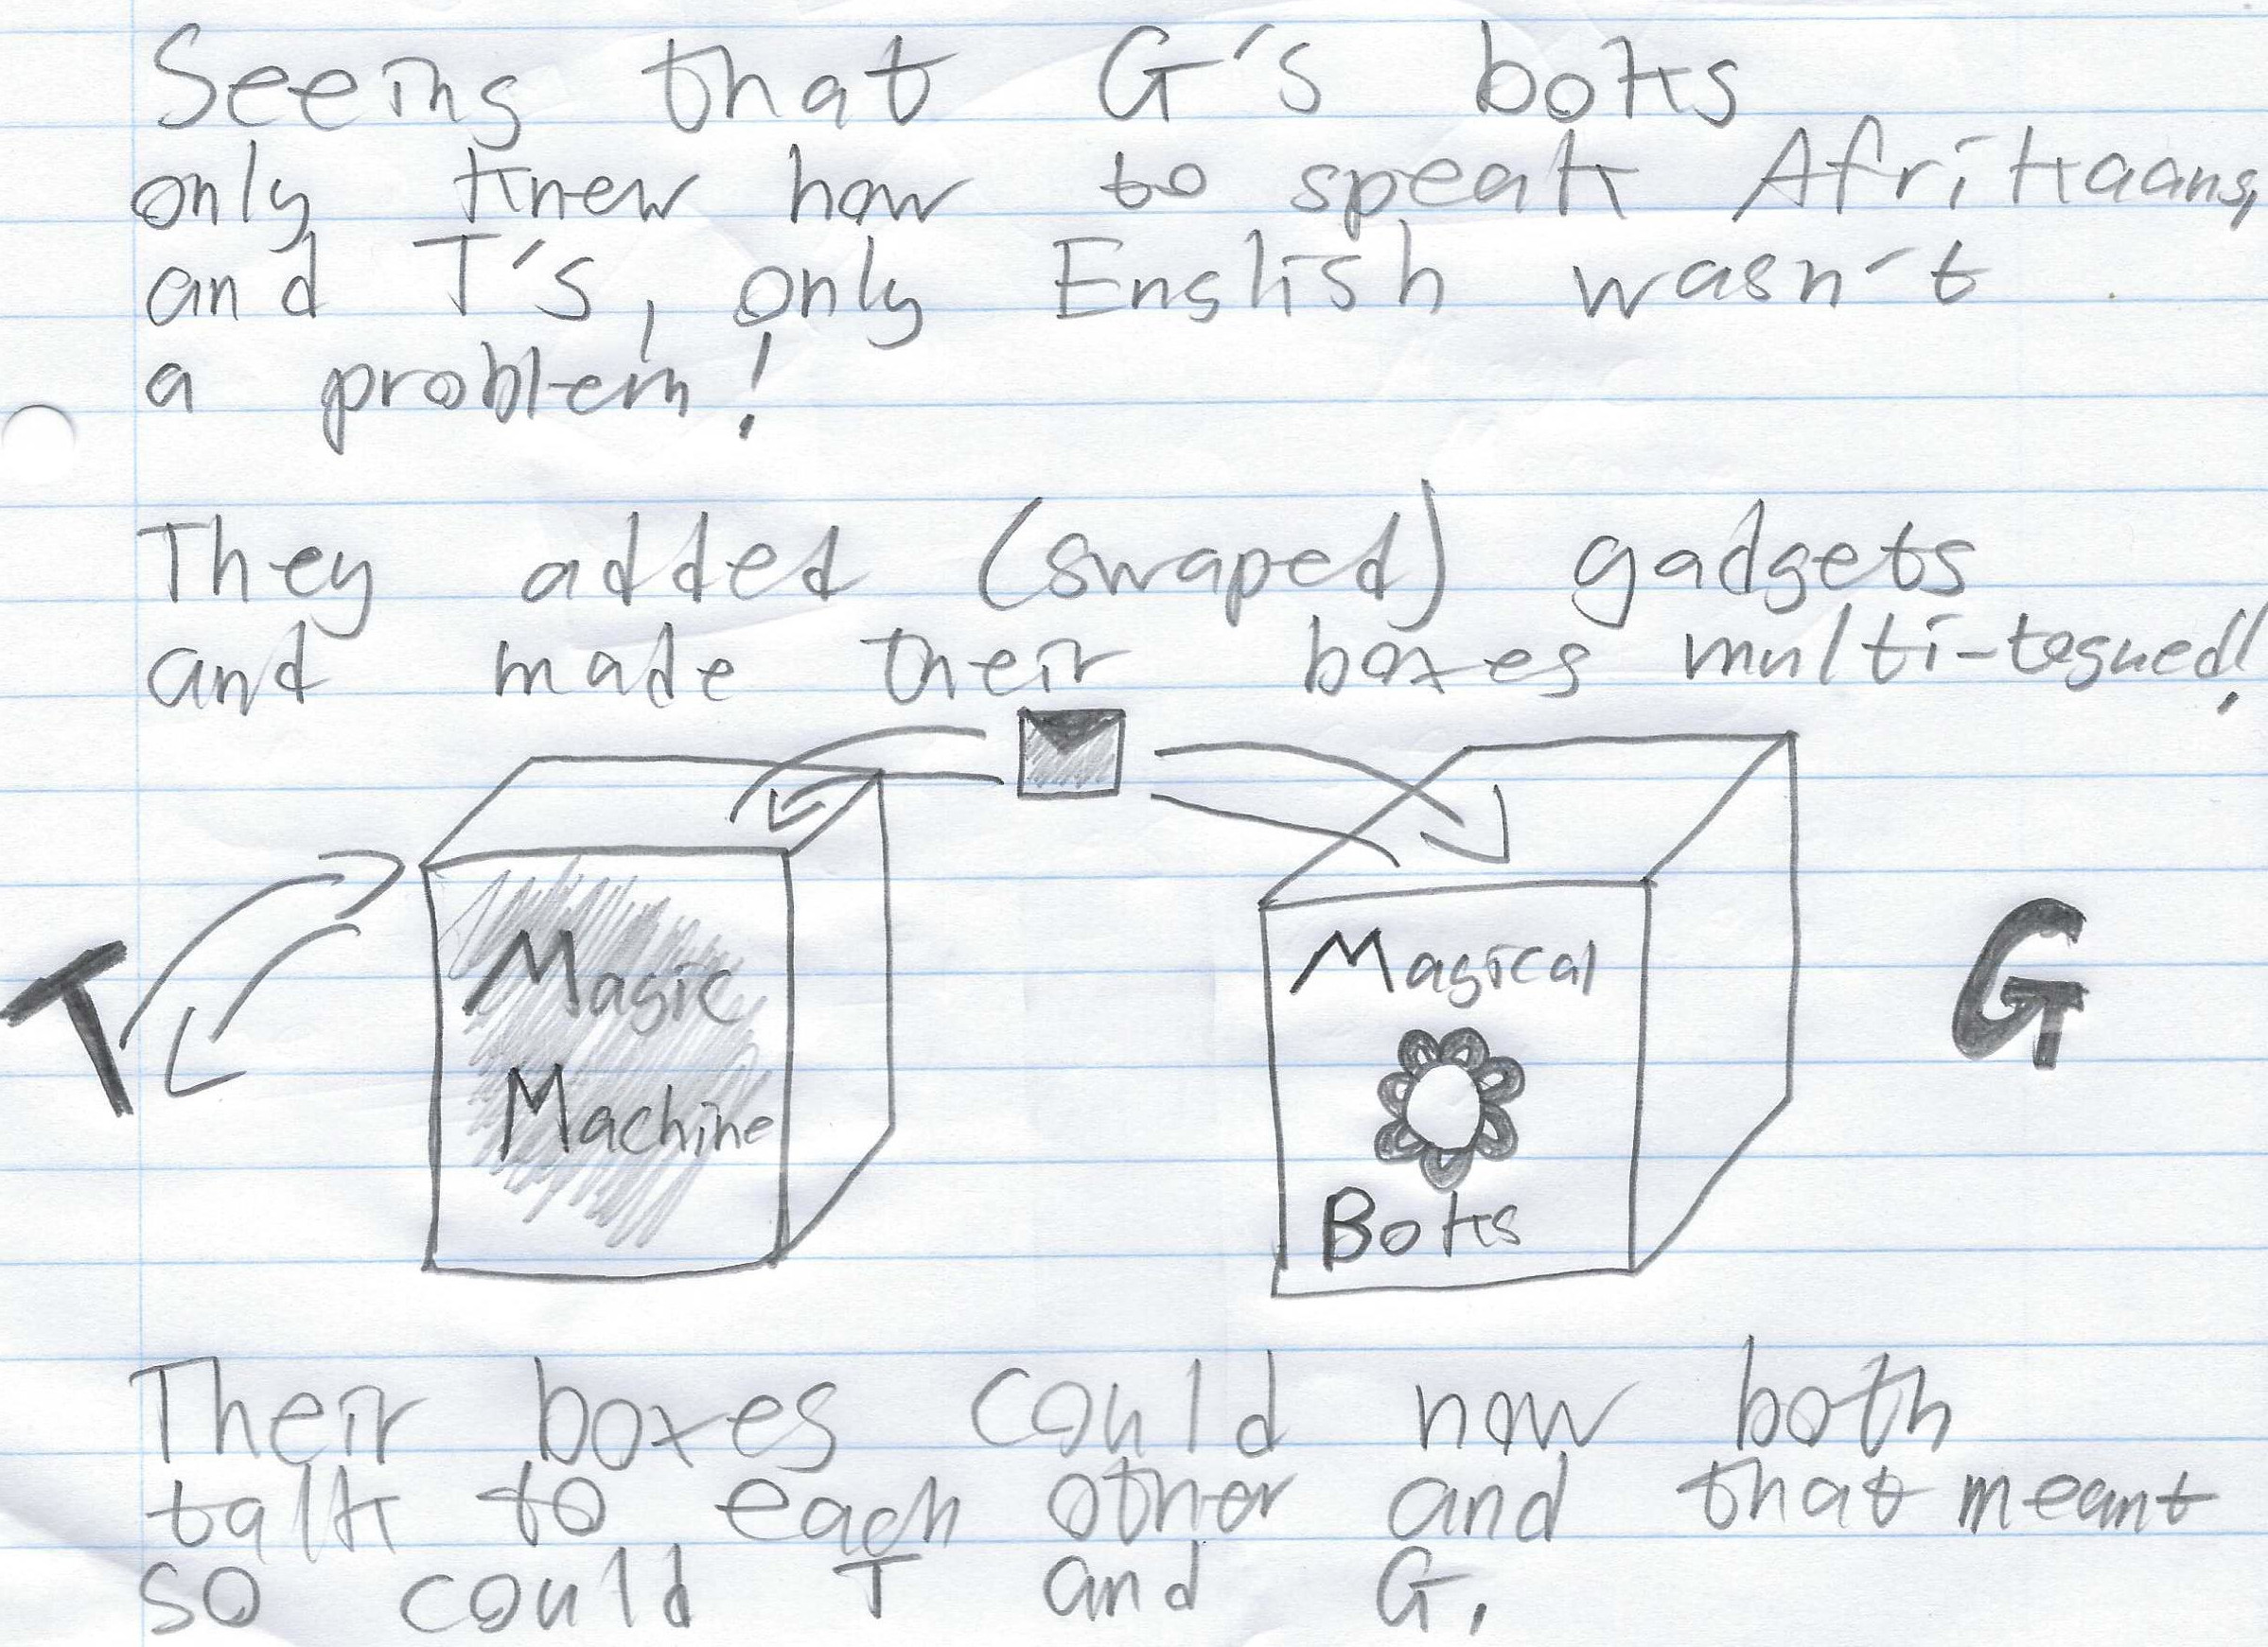 Seeing that G's boks
only knew how to speak Afrikaans,
and T's, only English wasn't
a problem!
They added (swaped) gadgets
and made their boxes multi-togued!
T
Magic
Machine
Magical
Boks
G
Their boxes could now both
talk to each other and that meant
so could T and G.